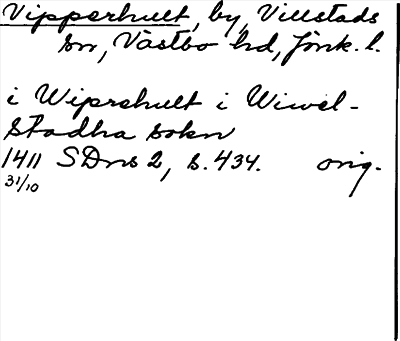 Vipperhult, by, Villstads
sn, Västbo hd, Jönk. l.
i Wiprehult i Wiwel-
stadha sokn
1411 SDns 2, s. 434. orig.
31/10